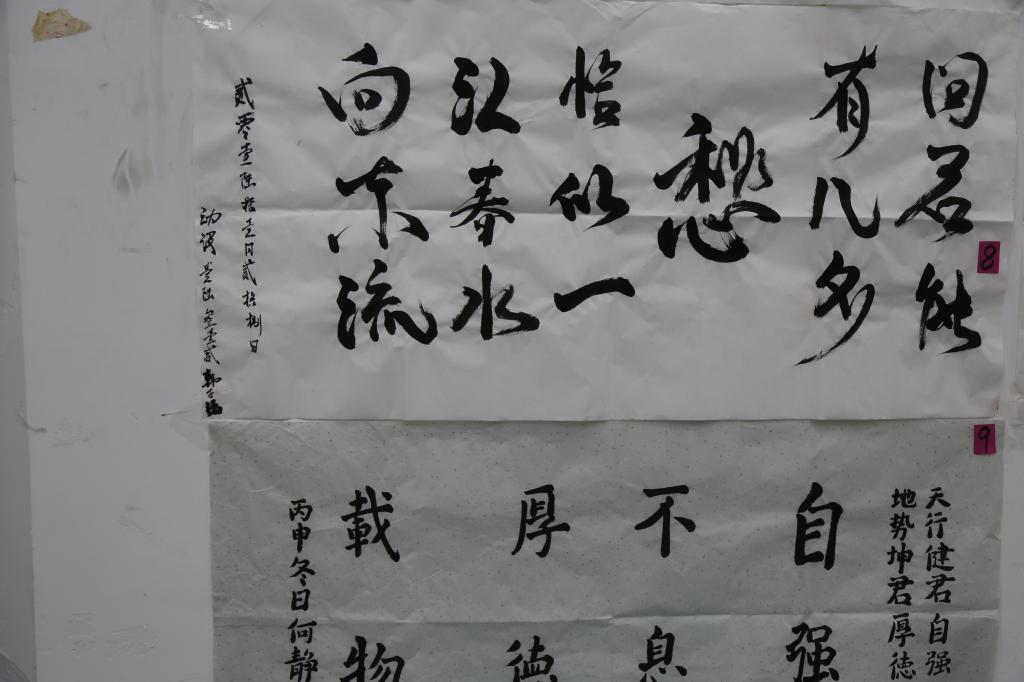 8
问君能
有几多
愁
恰似一
江春水
向东流
贰零壹陆拾壹月贰拾捌日
动漫壹陆叁壹贰
9
天行健君自强
地势坤君厚德
自强
不息
厚德
載物
丙申冬日何静